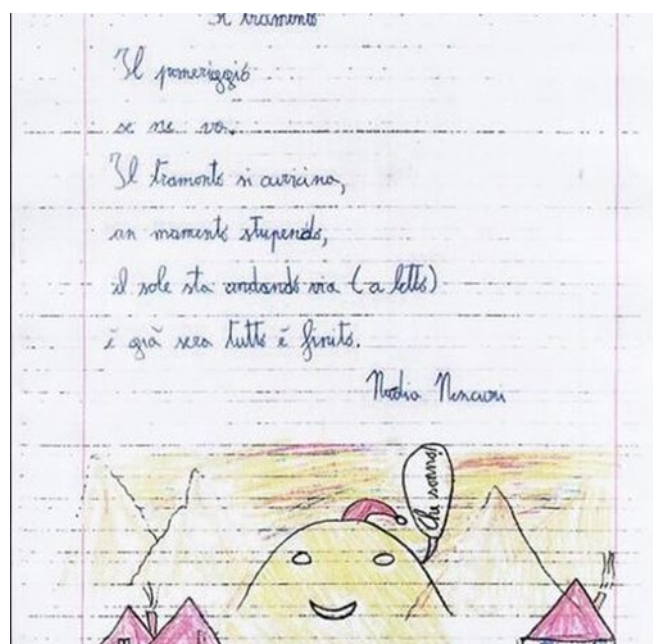 Il tramonto
Il pomeriggio
se ne va.
Il tramonto si avvicina,
un momento stupendo,
il sole sta andando via (a letto)
è già sera tutto è finito.
Nadia Nencioni
Che sonno!